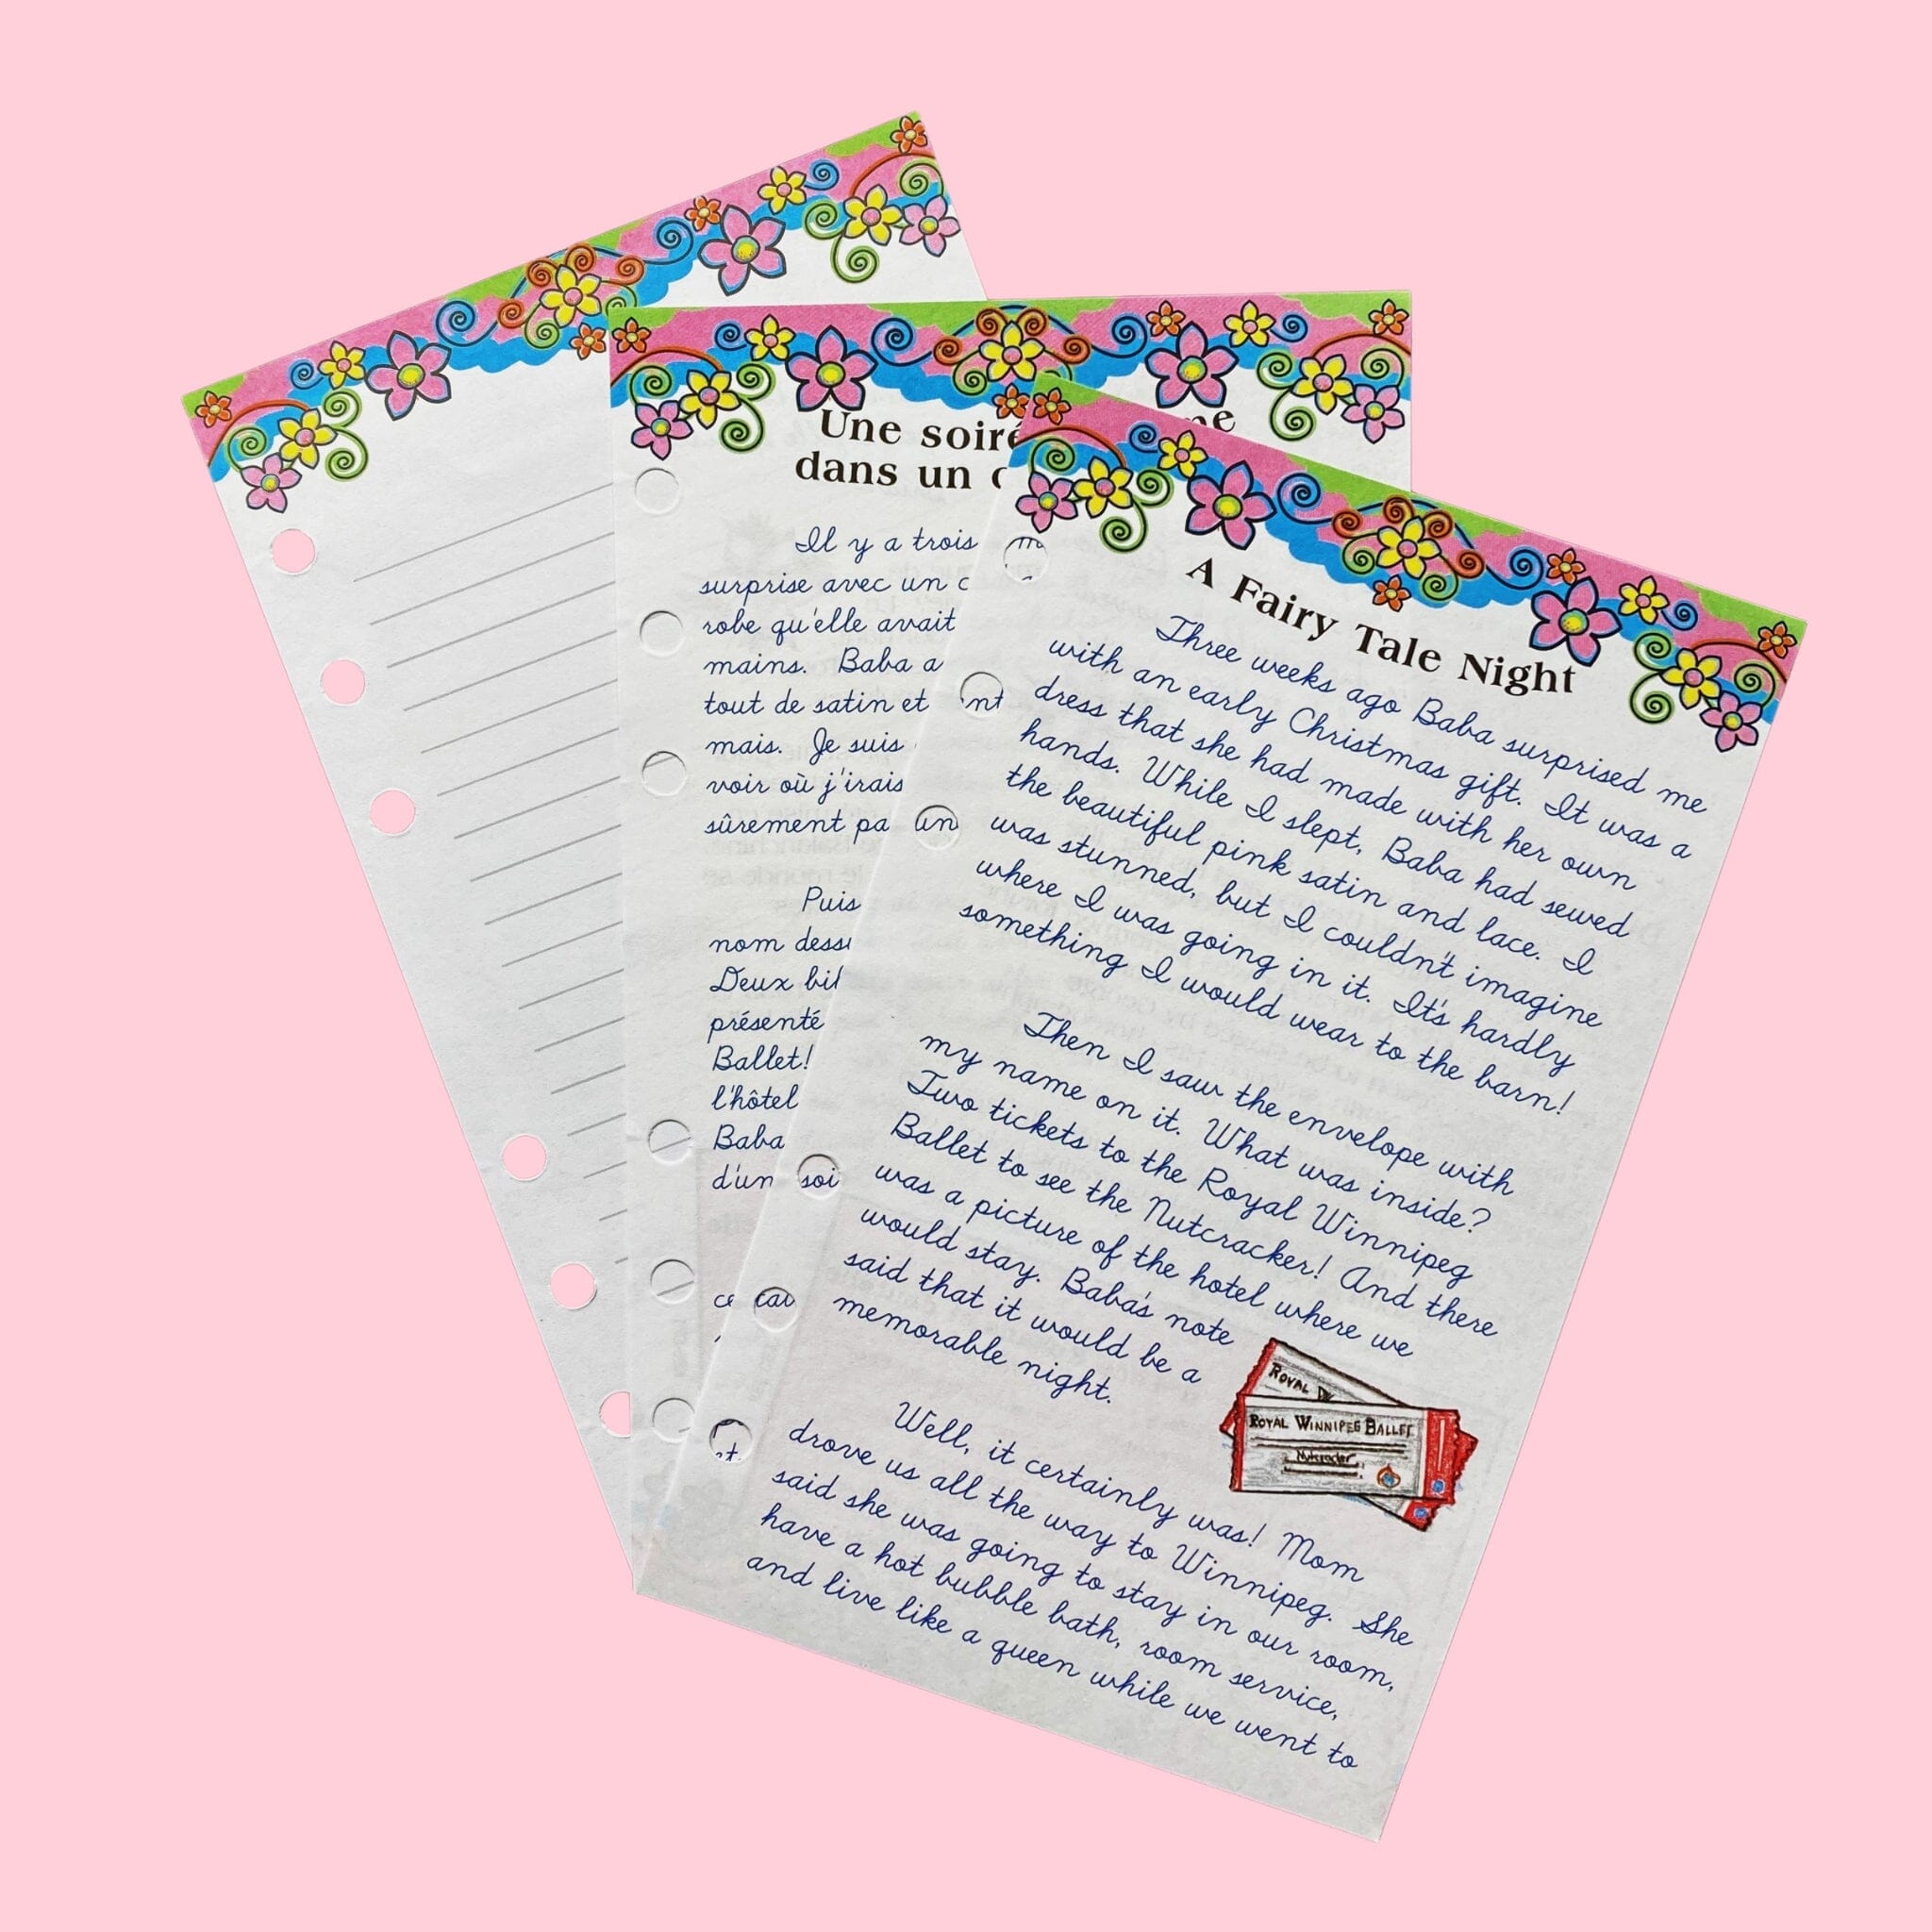 Une soiré ne
dans un c
Il y a trois
surprise avec un c
robe qu'elle avait
mains. Baba a
tout de satin et
mais. Je suis
voir où j'irais
sûrement pa un
Puis
nom dess
Deux bil
présenté
Ballet!
l'hôtel
Baba
d'un soi
ce
A Fairy Tale Night
Three weeks ago Baba surprised me
with an early Christmas gift. It was a
dress that she had made with her own
hands. While I slept, Baba had sewed
the beautiful pink satin and lace. I
was stunned, but I couldn't imagine
where I was going in it. It's hardly
something I would wear to the barn!
Then I saw the envelope with
my name on it. What was inside?
Two tickets to the Royal Winnipeg
Ballet to see the Nutcracker! And there
was a picture of the hotel where we
would stay. Baba's note
said that it would be a
memorable night.
ROYAL
ROYAL WINNIPEG BALLET
Nutcracker
Well, it certainly was! Mom
drove us all the way to Winnipeg. She
said she was going to stay in our room,
have a hot bubble bath, room service,
and live like a queen while we went to